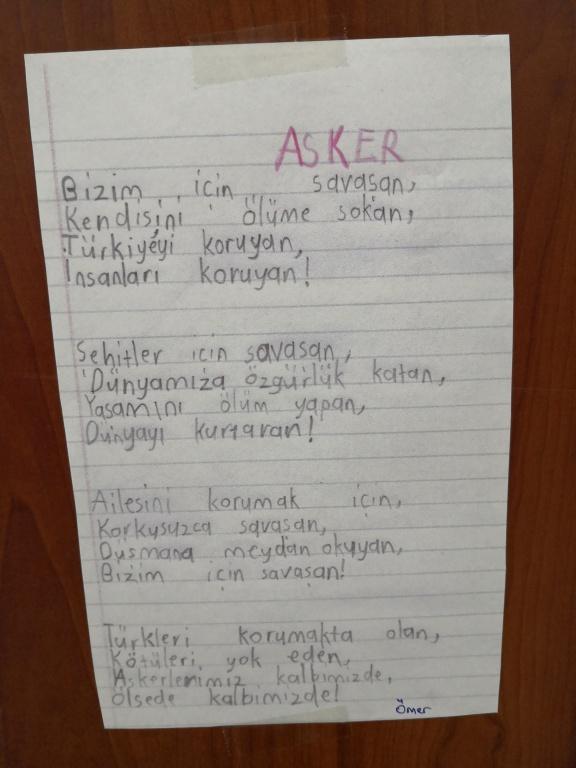 ASKER
Bizim için savaşan,
Kendisini ölüme sokan,
Türkiyeyi koruyan,
İnsanları koruyan!
Şehitler için savaşan,
Dünyamıza özgürlük katan,
Yaşamını ölüm yapan,
Dünyayı kurtaran!
Ailesini korumak için,
Korkusuzca savaşan,
Düşmana meydan okuyan,
Bizim için savaşan!
Türkleri korumakta olan,
Kötüleri yok eden,
Askerlerimiz kalbimizde,
Ölsede kalbimizde!
Ömer